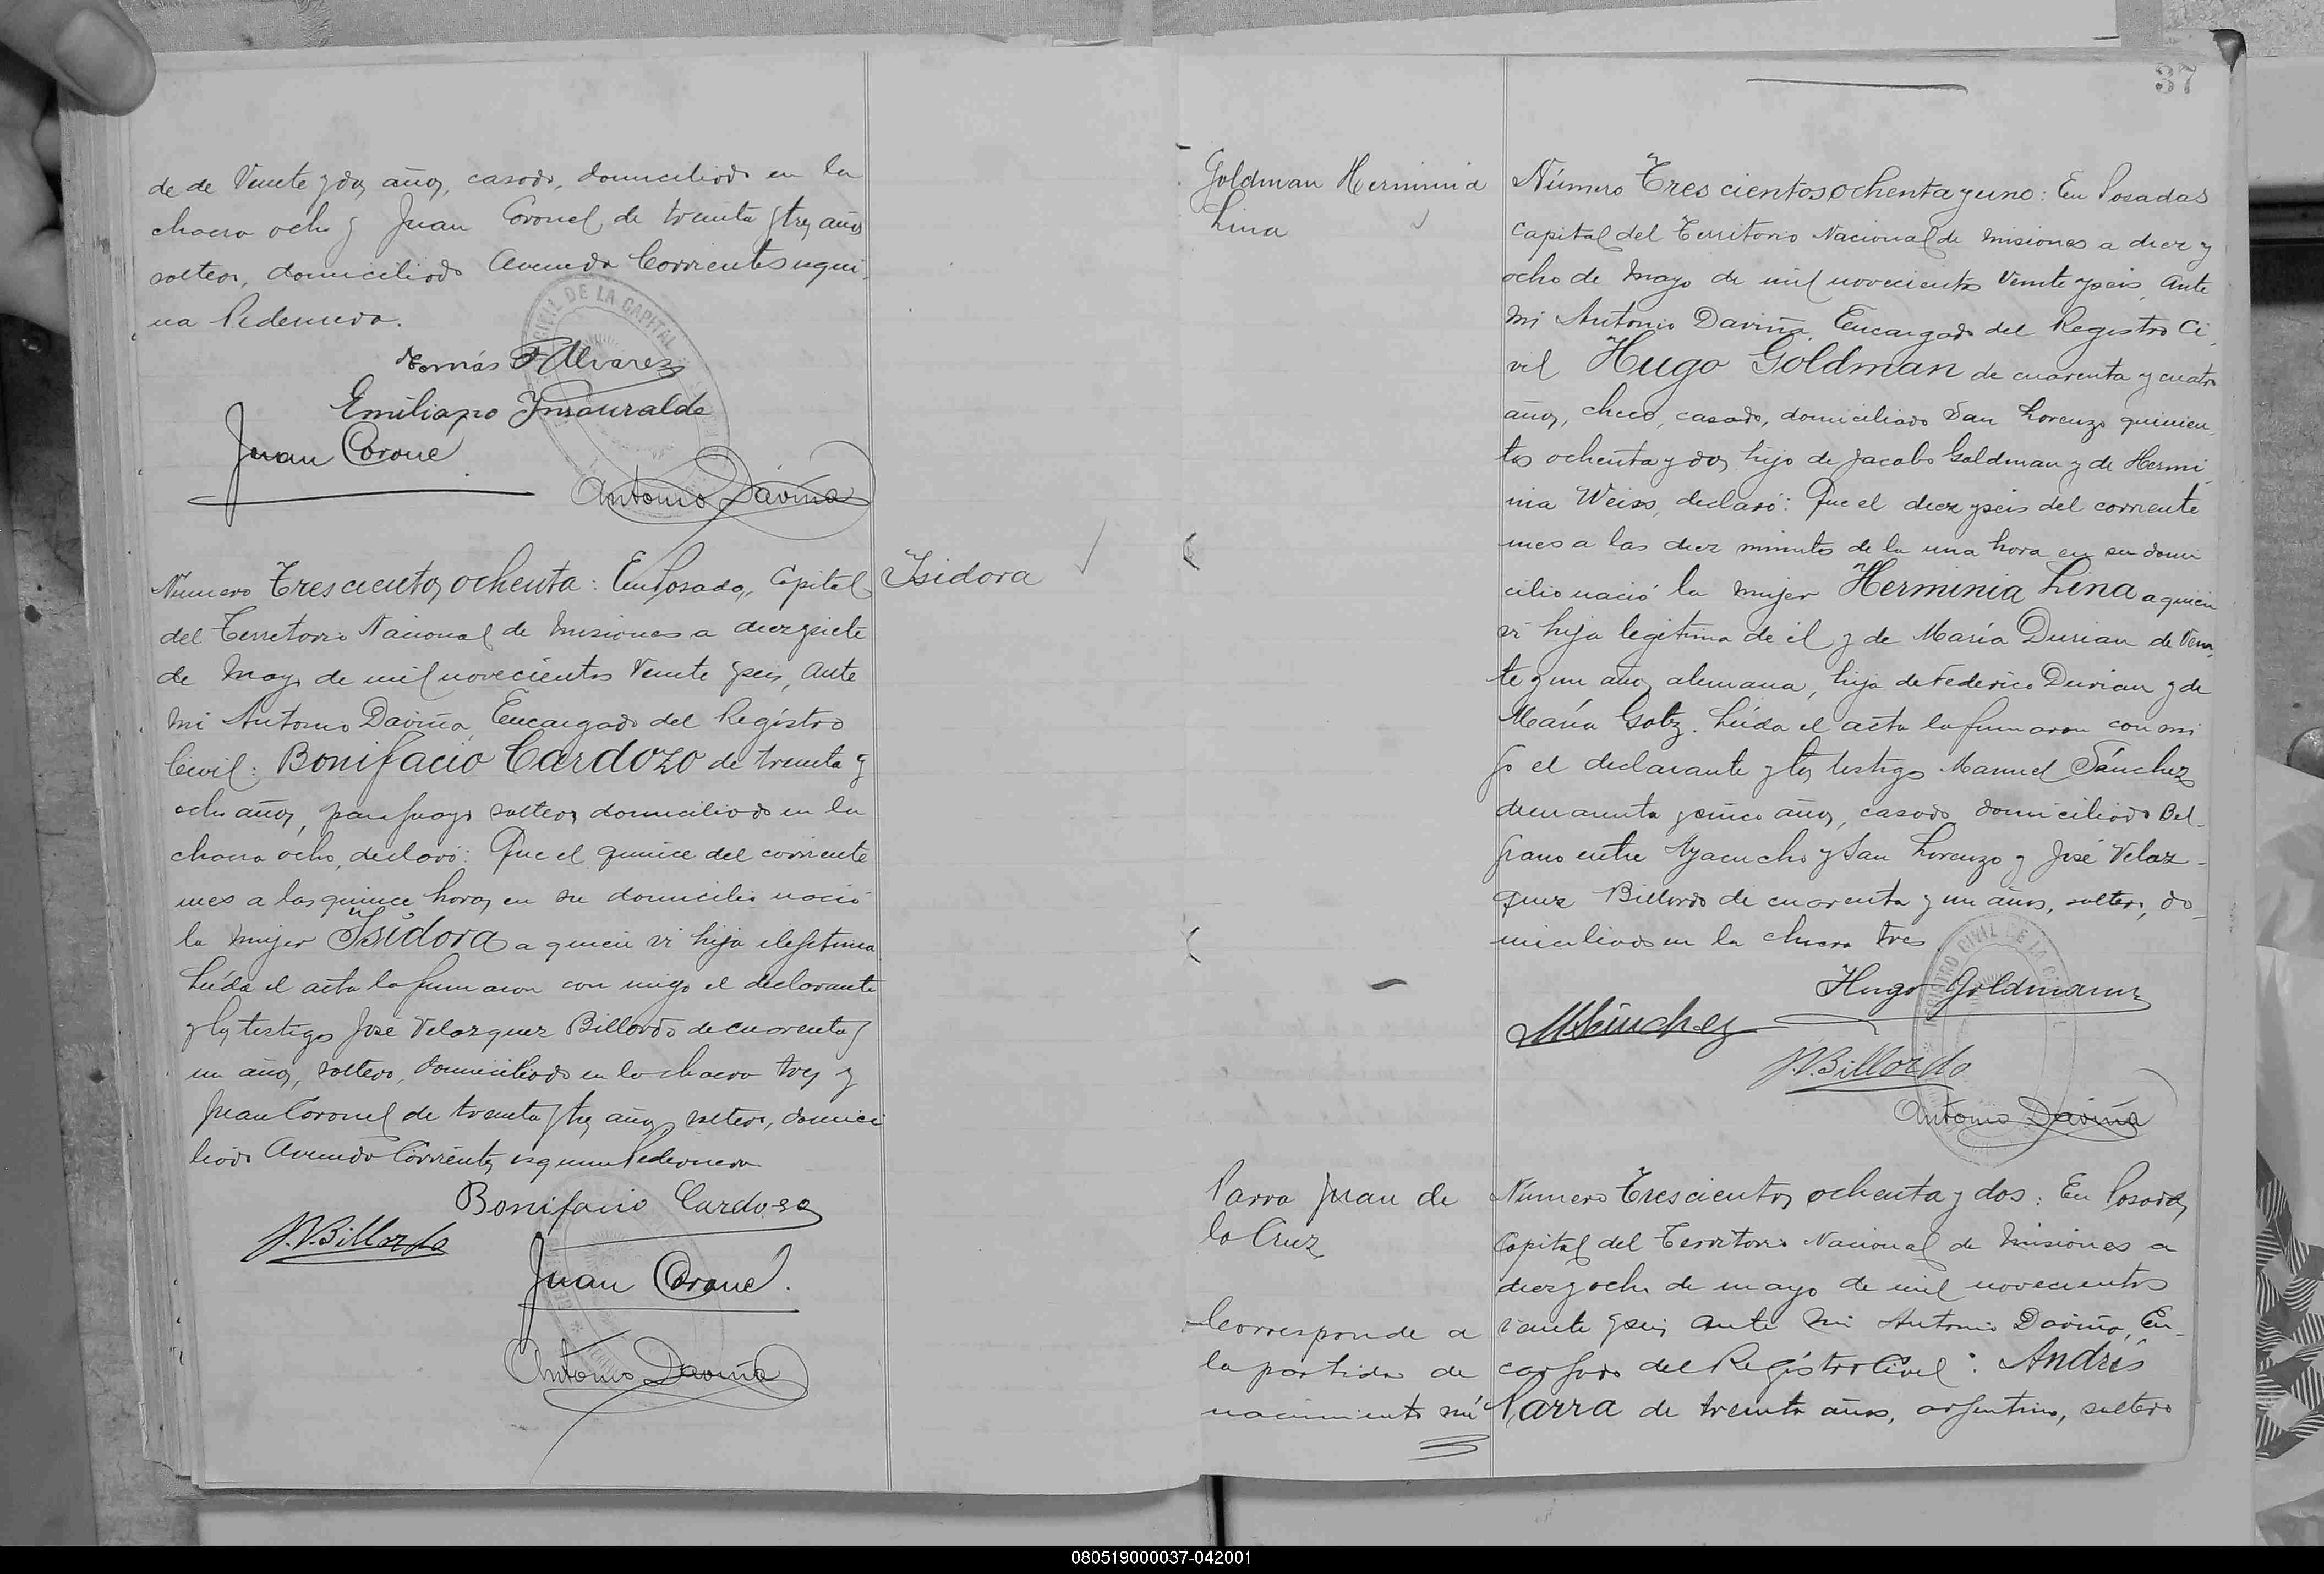 de de Veinte y dos años, casado, domiciliado en la
chacra ocho y Juan Coronel de treinta y tres años
soltero, domiciliado Avenida Corrientes esqui-
na Pedernera.
Tomás F Alvarez
Emiliano Insaurralde
Juan Corone
Antonio Daviña
Número Trescientos ochenta: En Posadas, Capital
del Territorio Nacional de Misiones a diez y siete
de Mayo de mil novecientos Veinte y seis, Ante
mi Antonio Daviña, Encargado del Registro
Civil: Bonifacio Cardozo de treinta y
ocho años, paraguayo soltero domiciliado en la
chacra ocho, declaró: Que el quince del corriente
mes a las quince horas en su domicilio nació
la mujer Isidora a quien vi hija ilegitima
Leída el acta la firmaron con migo el declarante
y los testigos José Velazquez Billordo de cuarenta y
un años, soltero, domiciliado en la chacra tres y
Juan Coronel de treinta y tres años, soltero, domici
liado Avenida Corrientes esquina Pedernera
Bonifacio Cardoso
J.V.Billordo
Juan Corone.
Antonio Daviña
Isidora
37
Goldman Herminia
Lina
Número Trescientos ochenta y uno: En Posadas
Capital del Territorio Nacional de Misiones a diez y
ocho de Mayo de mil novecientos Veinte y seis, Ante
mi Antonio Daviña, Encargado del Registro Ci-
vil Hugo Goldman de cuarenta y cuatro
años, checo, casado, domiciliado San Lorenzo quinien-
tos ochenta y dos, hijo de Jacobo Goldman y de Hermi-
nia Weiss, declaró: Que el diez y seis del corriente
mes a las diez minutos de la una hora en su domi
cilio nació la mujer Herminia Lina a quien
vi hija legitima de él y de María Durian de Vein-
te y un años, alemana, hija de Federico Durian y de
María Gotz. Leída el acta la firmaron con mi
go el declarante y los testigos Manuel Sánchez
de cuarenta y cinco años, casado, domiciliado Bel-
grano entre Ayacucho y San Lorenzo y José Velaz-
quez Billordo de cuarenta y un años, soltero, do-
miciliado en la chacra tres
Hugo Goldmann
MSánchez
J.V.Billordo
Antonio Daviña
REGISTRO CIVIL DE LA CAPITAL
Parra Juan de
la Cruz
Corresponde a
la partida de
nacimiento nú
Número Trescientos ochenta y dos: En Posadas,
Capital del Territorio Nacional de Misiones a
diez y ocho de mayo de mil novecientos
veinte y seis, ante mi Antonio Daviña, En-
cargado del Registro Civil: Andrés
Parra de treinta años, argentino, soltero
080519000037-042001